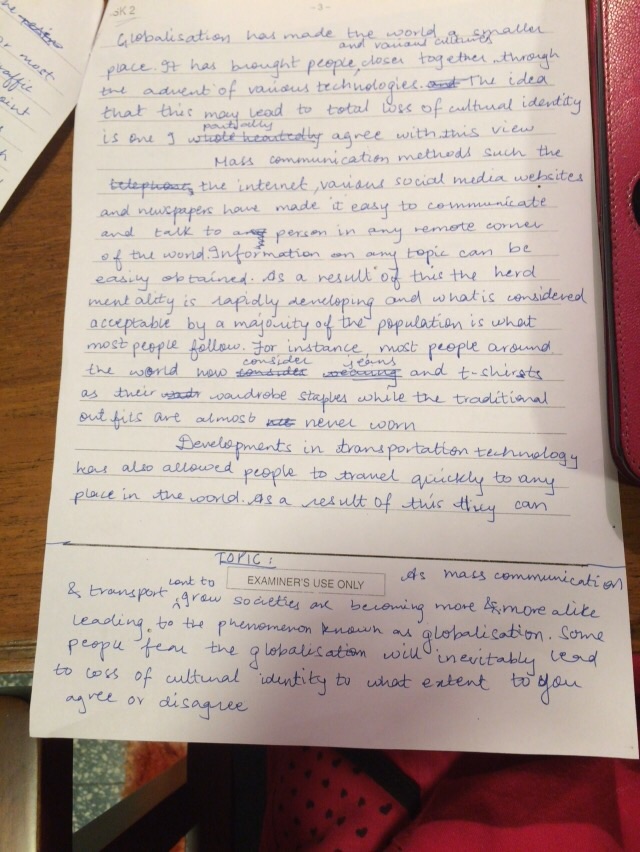 he
or most
raffic
oint
h
SK2
-3-
Globalisation has made the world a smaller
and various cultures
place. It has brought people closer together through
the advent of various technologies. and The idea
that this may lead to total loss of cultural identity
partially
is one I whole heartedly agree with this view
Mass communication methods such the
telephone, the internet, various social media websites
and newspapers have made it easy to communicate
and talk to any person in any remote corner
of the world. Information on any topic can be
easily obtained. As a result of this the herd
mentality is rapidly developing and what is considered
acceptable by a majority of the population is what
most people follow. For instance, most people around
consider jeans
the world now consider wearing and t-shirts
as their wardrobe staples while the traditional
outfits are almost never worn
Developments in transportation technology
has also allowed people to travel quickly to any
place in the world. As a result of this they can
TOPIC:
EXAMINER'S USE ONLY
As mass communication
cont to
& transport grow societies are becoming more & more alike
leading to the phenomenon known as globalisation. Some
people fear the globalisation will inevitably lead
to loss of cultural identity to what extent to you
agree or disagree